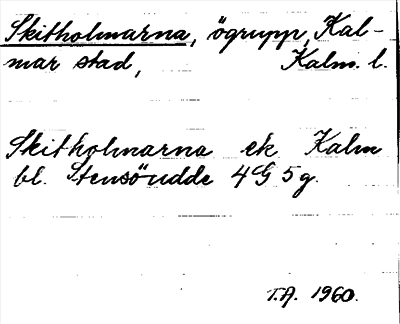 Skitholmarna, ögrupp, Kal-
mar stad, Kalm. l.
Skitholmarna ek Kalm
bl. Stensöudde 4G 5g.
T.A. 1960.